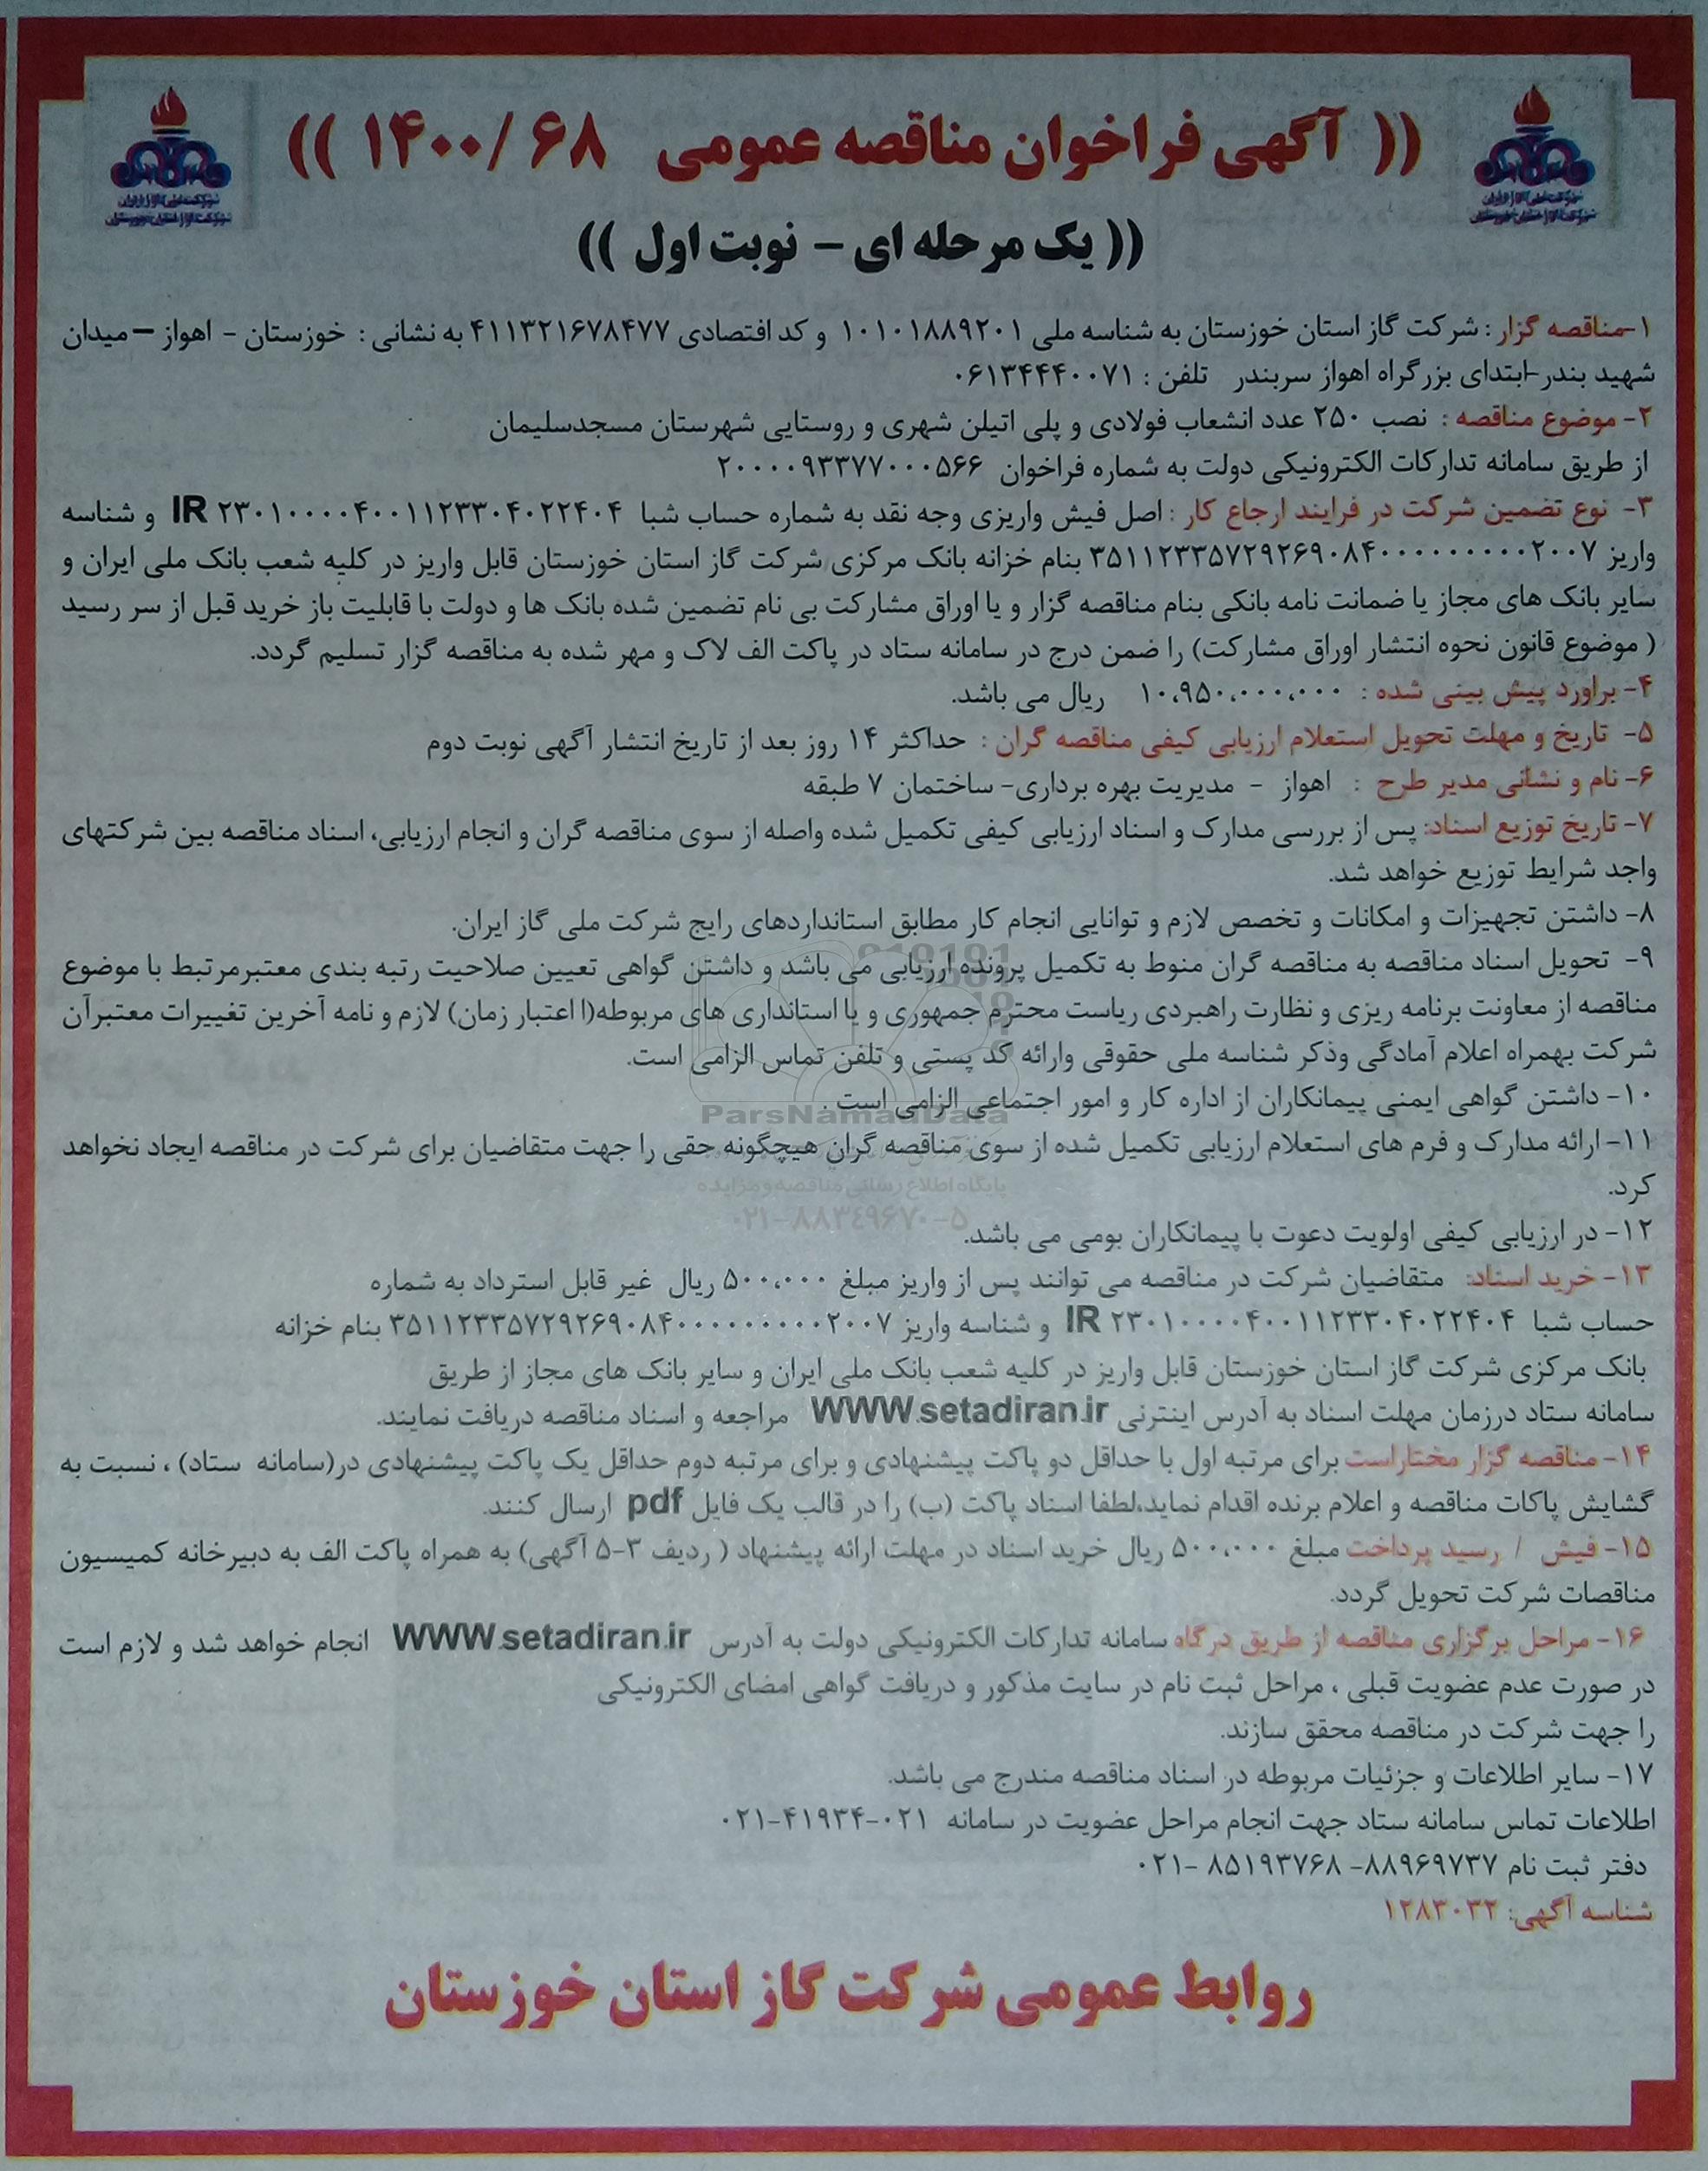 (( آگهی فراخوان مناقصه عمومی ۶۸ /۱۴۰۰ ))
(( یک مرحله ای – نوبت اول ))
۱-مناقصه گزار : شرکت گاز استان خوزستان به شناسه ملی ۱۰۱۰۱۸۸۹۲۰۱ و کد اقتصادی ۴۱۱۳۲۱۶۷۸۴۷۷ به نشانی : خوزستان - اهواز – میدان
شهید بندر-ابتدای بزرگراه اهواز سربندر تلفن : ۰۶۱۳۴۴۴۰۰۷۱
۲- موضوع مناقصه : نصب ۲۵۰ عدد انشعاب فولادی و پلی اتیلن شهری و روستایی شهرستان مسجدسلیمان
از طریق سامانه تدارکات الکترونیکی دولت به شماره فراخوان ۲۰۰۰۰۹۳۳۷۷۰۰۰۵۶۶
۳- نوع تضمین شرکت در فرایند ارجاع کار : اصل فیش واریزی وجه نقد به شماره حساب شبا IR ۲۳۰۱۰۰۰۰۴۰۰۱۱۲۳۳۰۴۰۲۲۴۰۴ و شناسه
واریز ۳۵۱۱۲۳۳۵۷۲۹۲۶۹۰۸۴۰۰۰۰۰۰۰۰۰۰۲۰۰۷ بنام خزانه بانک مرکزی شرکت گاز استان خوزستان قابل واریز در کلیه شعب بانک ملی ایران و
سایر بانک های مجاز یا ضمانت نامه بانکی بنام مناقصه گزار و یا اوراق مشارکت بی نام تضمین شده بانک ها و دولت با قابلیت باز خرید قبل از سر رسید
( موضوع قانون نحوه انتشار اوراق مشارکت) را ضمن درج در سامانه ستاد در پاکت الف لاک و مهر شده به مناقصه گزار تسلیم گردد.
۴- براورد پیش بینی شده : ۱۰،۹۵۰،۰۰۰،۰۰۰ ریال می باشد.
۵- تاریخ و مهلت تحویل استعلام ارزیابی کیفی مناقصه گران : حداکثر ۱۴ روز بعد از تاریخ انتشار آگهی نوبت دوم
۶- نام و نشانی مدیر طرح : اهواز - مدیریت بهره برداری- ساختمان ۷ طبقه
۷- تاریخ توزیع اسناد: پس از بررسی مدارک و اسناد ارزیابی کیفی تکمیل شده واصله از سوی مناقصه گران و انجام ارزیابی، اسناد مناقصه بین شرکتهای
واجد شرایط توزیع خواهد شد.
۸- داشتن تجهیزات و امکانات و تخصص لازم و توانایی انجام کار مطابق استانداردهای رایج شرکت ملی گاز ایران.
۹- تحویل اسناد مناقصه به مناقصه گران منوط به تکمیل پرونده ارزیابی می باشد و داشتن گواهی تعیین صلاحیت رتبه بندی معتبرمرتبط با موضوع
مناقصه از معاونت برنامه ریزی و نظارت راهبردی ریاست محترم جمهوری و یا استانداری های مربوطه(ا اعتبار زمان) لازم و نامه آخرین تغییرات معتبرآن
شرکت بهمراه اعلام آمادگی وذکر شناسه ملی حقوقی وارائه کد پستی و تلفن تماس الزامی است.
۱۰- داشتن گواهی ایمنی پیمانکاران از اداره کار و امور اجتماعی الزامی است .
ParsNamadData
۱۱- ارائه مدارک و فرم های استعلام ارزیابی تکمیل شده از سوی مناقصه گران هیچگونه حقی را جهت متقاضیان برای شرکت در مناقصه ایجاد نخواهد
کرد.
پایگاه اطلاع رسانی مناقصه و مزایده
۰۲۱-۸۸۳۴۹۶۷۰-۵
۱۲- در ارزیابی کیفی اولویت دعوت با پیمانکاران بومی می باشد.
۱۳- خرید اسناد: متقاضیان شرکت در مناقصه می توانند پس از واریز مبلغ ۵۰۰،۰۰۰ ریال غیر قابل استرداد به شماره
حساب شبا IR ۲۳۰۱۰۰۰۰۴۰۰۱۱۲۳۳۰۴۰۲۲۴۰۴ و شناسه واریز ۳۵۱۱۲۳۳۵۷۲۹۲۶۹۰۸۴۰۰۰۰۰۰۰۰۰۰۲۰۰۷ بنام خزانه
بانک مرکزی شرکت گاز استان خوزستان قابل واریز در کلیه شعب بانک ملی ایران و سایر بانک های مجاز از طریق
سامانه ستاد درزمان مهلت اسناد به آدرس اینترنتی WWW.setadiran.ir مراجعه و اسناد مناقصه دریافت نمایند.
۱۴- مناقصه گزار مختاراست برای مرتبه اول با حداقل دو پاکت پیشنهادی و برای مرتبه دوم حداقل یک پاکت پیشنهادی در(سامانه ستاد) ، نسبت به
گشایش پاکات مناقصه و اعلام برنده اقدام نماید،لطفا اسناد پاکت (ب) را در قالب یک فایل pdf ارسال کنند.
۱۵- فیش / رسید پرداخت مبلغ ۵۰۰،۰۰۰ ریال خرید اسناد در مهلت ارائه پیشنهاد ( ردیف ۳-۵ آگهی) به همراه پاکت الف به دبیرخانه کمیسیون
مناقصات شرکت تحویل گردد.
۱۶- مراحل برگزاری مناقصه از طریق درگاه سامانه تدارکات الکترونیکی دولت به آدرس WWW.setadiran.ir انجام خواهد شد و لازم است
در صورت عدم عضویت قبلی ، مراحل ثبت نام در سایت مذکور و دریافت گواهی امضای الکترونیکی
را جهت شرکت در مناقصه محقق سازند.
۱۷- سایر اطلاعات و جزئیات مربوطه در اسناد مناقصه مندرج می باشد.
اطلاعات تماس سامانه ستاد جهت انجام مراحل عضویت در سامانه ۰۲۱-۴۱۹۳۴-۰۲۱
دفتر ثبت نام ۸۸۹۶۹۷۳۷- ۸۵۱۹۳۷۶۸ -۰۲۱
شناسه آگهی: ۱۲۸۳۰۳۲
روابط عمومی شرکت گاز استان خوزستان